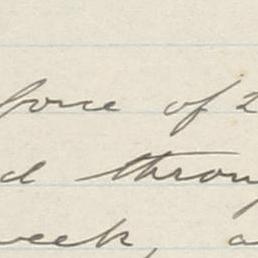 force of 2
d throug
week, a